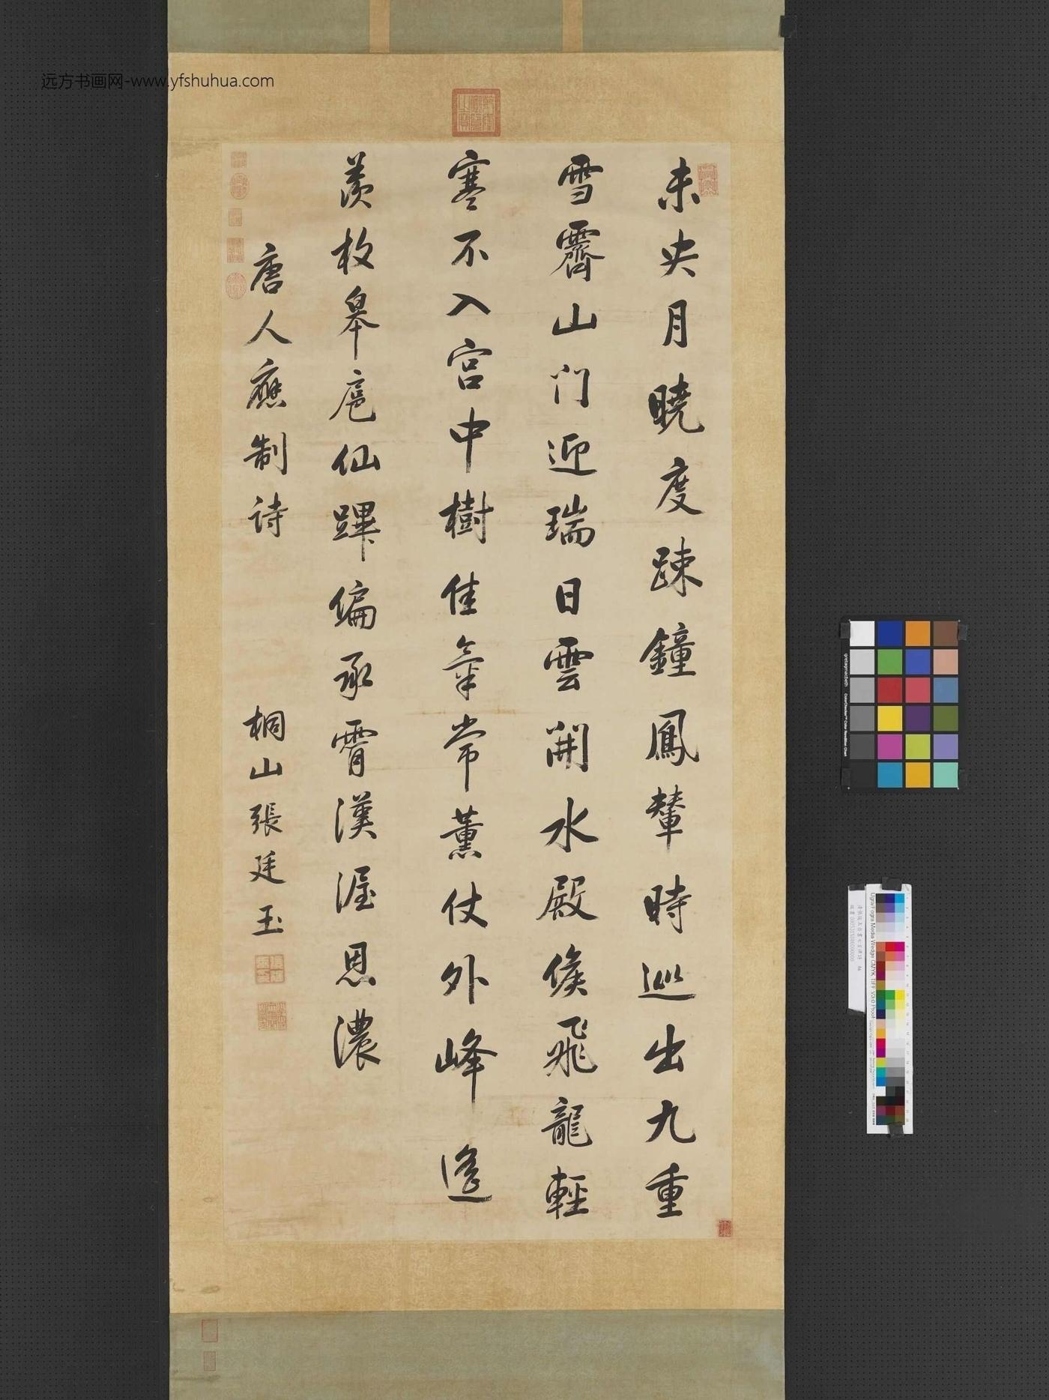 未央月曉度疎鐘鳳輦時巡出九重
雪霽山門迎瑞日雲開水殿候飛龍輕
寒不入宮中樹佳氣常薰仗外峰遙
羨枚皋扈仙蹕偏承霄漢渥恩濃
唐人應制诗
桐山張廷玉
远方书画网-www.yfshuhua.com